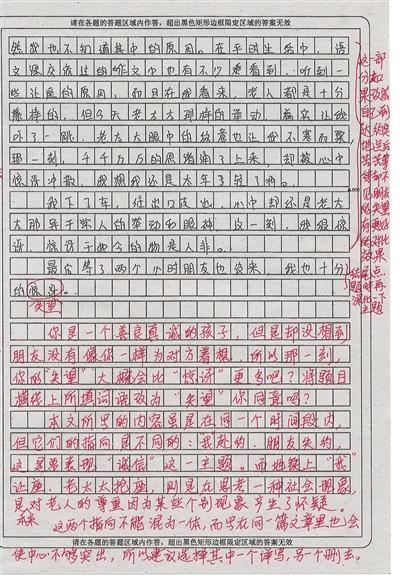 请在各题的答题区域内作答，超出黑色矩形边框限定区域的答案无效
然我也不知道其中的原因。在平时生活中，语
文课交给过的作文中也有不少更看到、听到一
些让座的原因，而且在我看来，老人都是十分
慈祥的，但今天老太太那样的举动，着实让我
吓了一跳，老太太眼中的故意也让我不寒而栗，
那一刻，千千万万的思绪涌了上来，却被心中
惊讶冲散，我想我还是太年了轻了啊。
我下了车，往出口走出，心中却还是老太
太那异于常人的举动和眼神，这一刻，我很惊
讶，惊讶于如今的物是人非。
最后等了两个小时朋友也没来，我也十分
的惊讶。
失望
这一部分如果改成自己刚赴约迟到后苦苦等待却不见朋友的失望有更好的对比效果
结尾点题时再深化一下主题
你是一个善良真诚的孩子，但是却没想到
朋友没有像你一样为对方着想，所以那一刻，
你的“失望”大概会比“惊讶”更多吧？将题目
横线上所填词语改为“失望”你同意吗？
本文所写的内容虽是在同一个时间段内，
但它们的指向是不同的：我赴约，朋友失约，
这是要表现“诚信”这一主题。而她被上“我”
让座、老太太抢座，则是在思考一种社会现象，
是对老人的尊重因为某些个别现象产生了怀疑。
未来
这两个指向不能混为一体，而写在同一篇文章里也会
请在各题的答题区域内作答，超出黑色矩形边框限定区域的答案无效
使中心不够突出，所以建议选择其中一个详写，另一个删去。